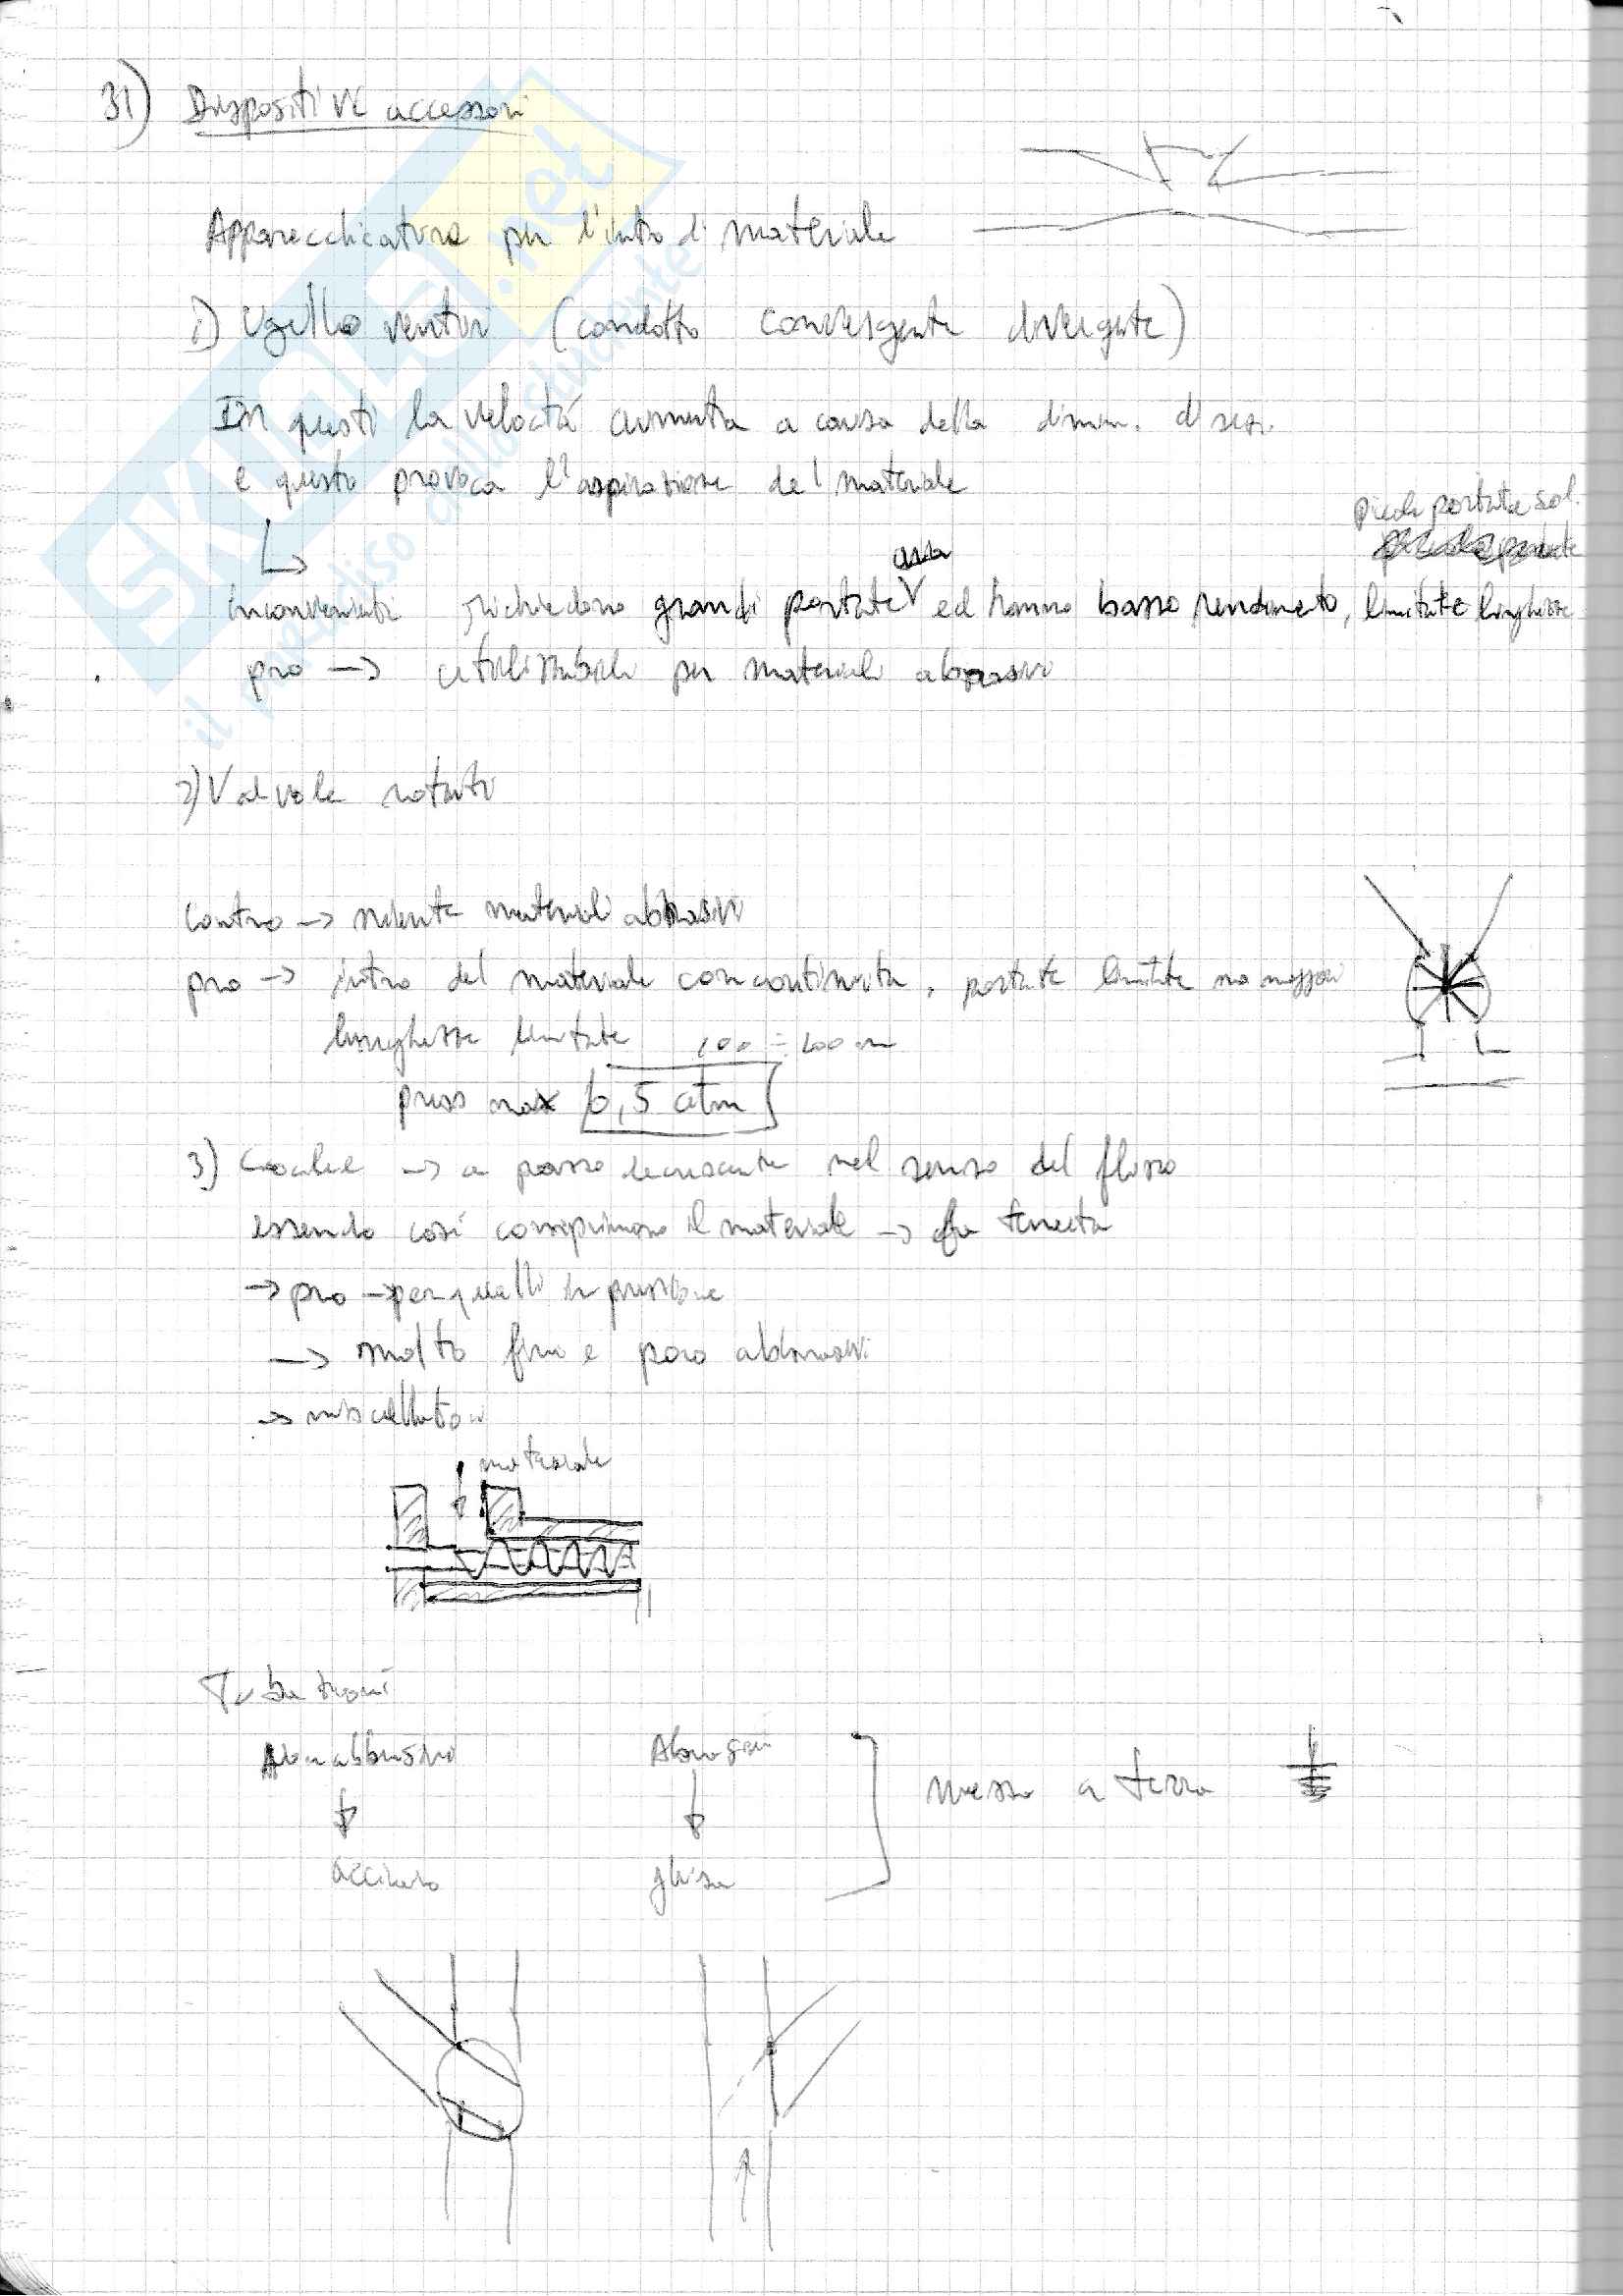 31) Dispositivi accessori
Apparecchiature per l'intro di materiale
1) Ugello venturi (condotto convergente divergente)
In questi la velocità aumenta a causa della dimin. di sez.
e questo provoca l'aspirazione del materiale
piccole portate sol.
aria
inconvenienti richiedono grandi portate ed hanno basso rendimento, limitate lunghezze
pro → utilizzabili per materiali abrasivi
2) Valvole rotanti
contro → niente materiali abrasivi
pro → intro del materiale con continuità, portate limitate ma maggiori
lunghezze limitate 100 ÷ 200 m
press max 0,5 atm
3) Coclee → a passo decrescente nel senso del flusso
essendo così comprimono il materiale → fa tenuta
→ pro → per quelli in pressione
→ molto fini e poco abbrasivi
→ miscellatori
materiale
Tubazioni
Abrasivi
acciaio
ghisa
messa a terra
SKUOLA.net
il paradiso dello studente